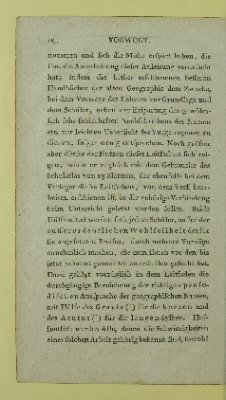 IV VORWORT.
nommen und sich die Mühe erspart haben, die
ihm die Ausarbeitung dieser Anleitung verursacht
hat; indem die bisher erschienenen besseren
Handbücher der alten Geographie dem Zwecke,
bei dem Vortrage des Lehrers zur Grundlage und
dem Schüler, neben der Ersparung des gewöhn-
lich sehr fehlerhaften Nachschreibens der Namen
etc. zur leichten Uebersicht des Vorgetragenen zu
dienen, sogar wenig entsprechen. Noch größer
aber dürfte der Nutzen dieses Leitfadens sich zei-
gen, wenn er zugleich mit dem Gebrauche des
Schulatlas von 13 Blättern, der ebenfalls bei dem
Verleger dieses Leitfadens, von dem Verf. bear-
beitet, erschienen ist, in die gehörige Verbindung
beim Unterricht gesetzt werden sollte. Beide
Hülfsmittel werden sich jedem Schüler, außer der
außerordentlichen Wohlfeilheit der für
sie angesetzten Preise, durch mehrere Vorzüge
annehmlich machen, die man ihnen vor den bis
jetzt bekannt gewordenen zu ertheilen gesucht hat.
Dazu gehört vorzüglich in dem Leitfaden die
durchgängige Bezeichnung der richtigen proso-
dischen Aussprache der geographischen Namen,
mit Hilfe des Gravis (`) für die kurzen und
des Acutus (´) für die langen Sylben. Hof-
fentlich werden Alle, denen die Schwierigkeiten
einer solchen Arbeit gehörig bekannt sind, sowohl